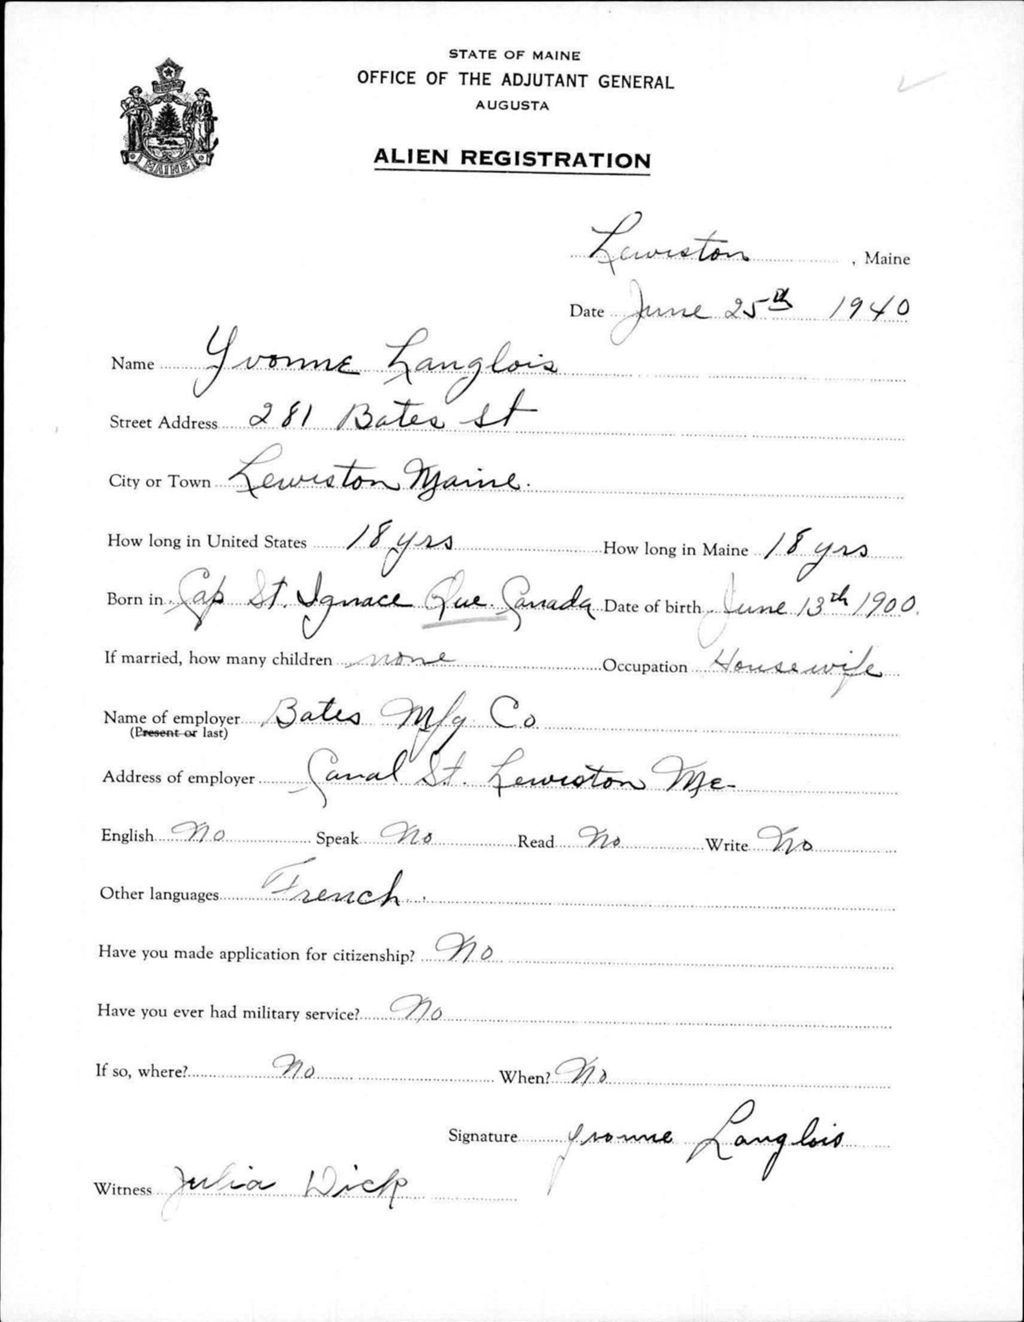 STATE OF MAINE
OFFICE OF THE ADJUTANT GENERAL
AUGUSTA
ALIEN REGISTRATION
MAINE
Lewiston, Maine
Date June 25th 1940
Name Yvonne Langlois
Street Address 281 Bates St
City or Town Lewiston Maine.
How long in United States 18 yrs How long in Maine 18 yrs
Born in Cap St. Ignace Que. Canada Date of birth June 13th 1900.
If married, how many children none Occupation Housewife
Name of employer Bates Mfg Co
(Present or last)
Address of employer Canal St. Lewiston Me-
English No Speak No Read No Write No
Other languages French.
Have you made application for citizenship? No
Have you ever had military service? No
If so, where? No When? No
Signature Yvonne Langlois
Witness Julia Dick